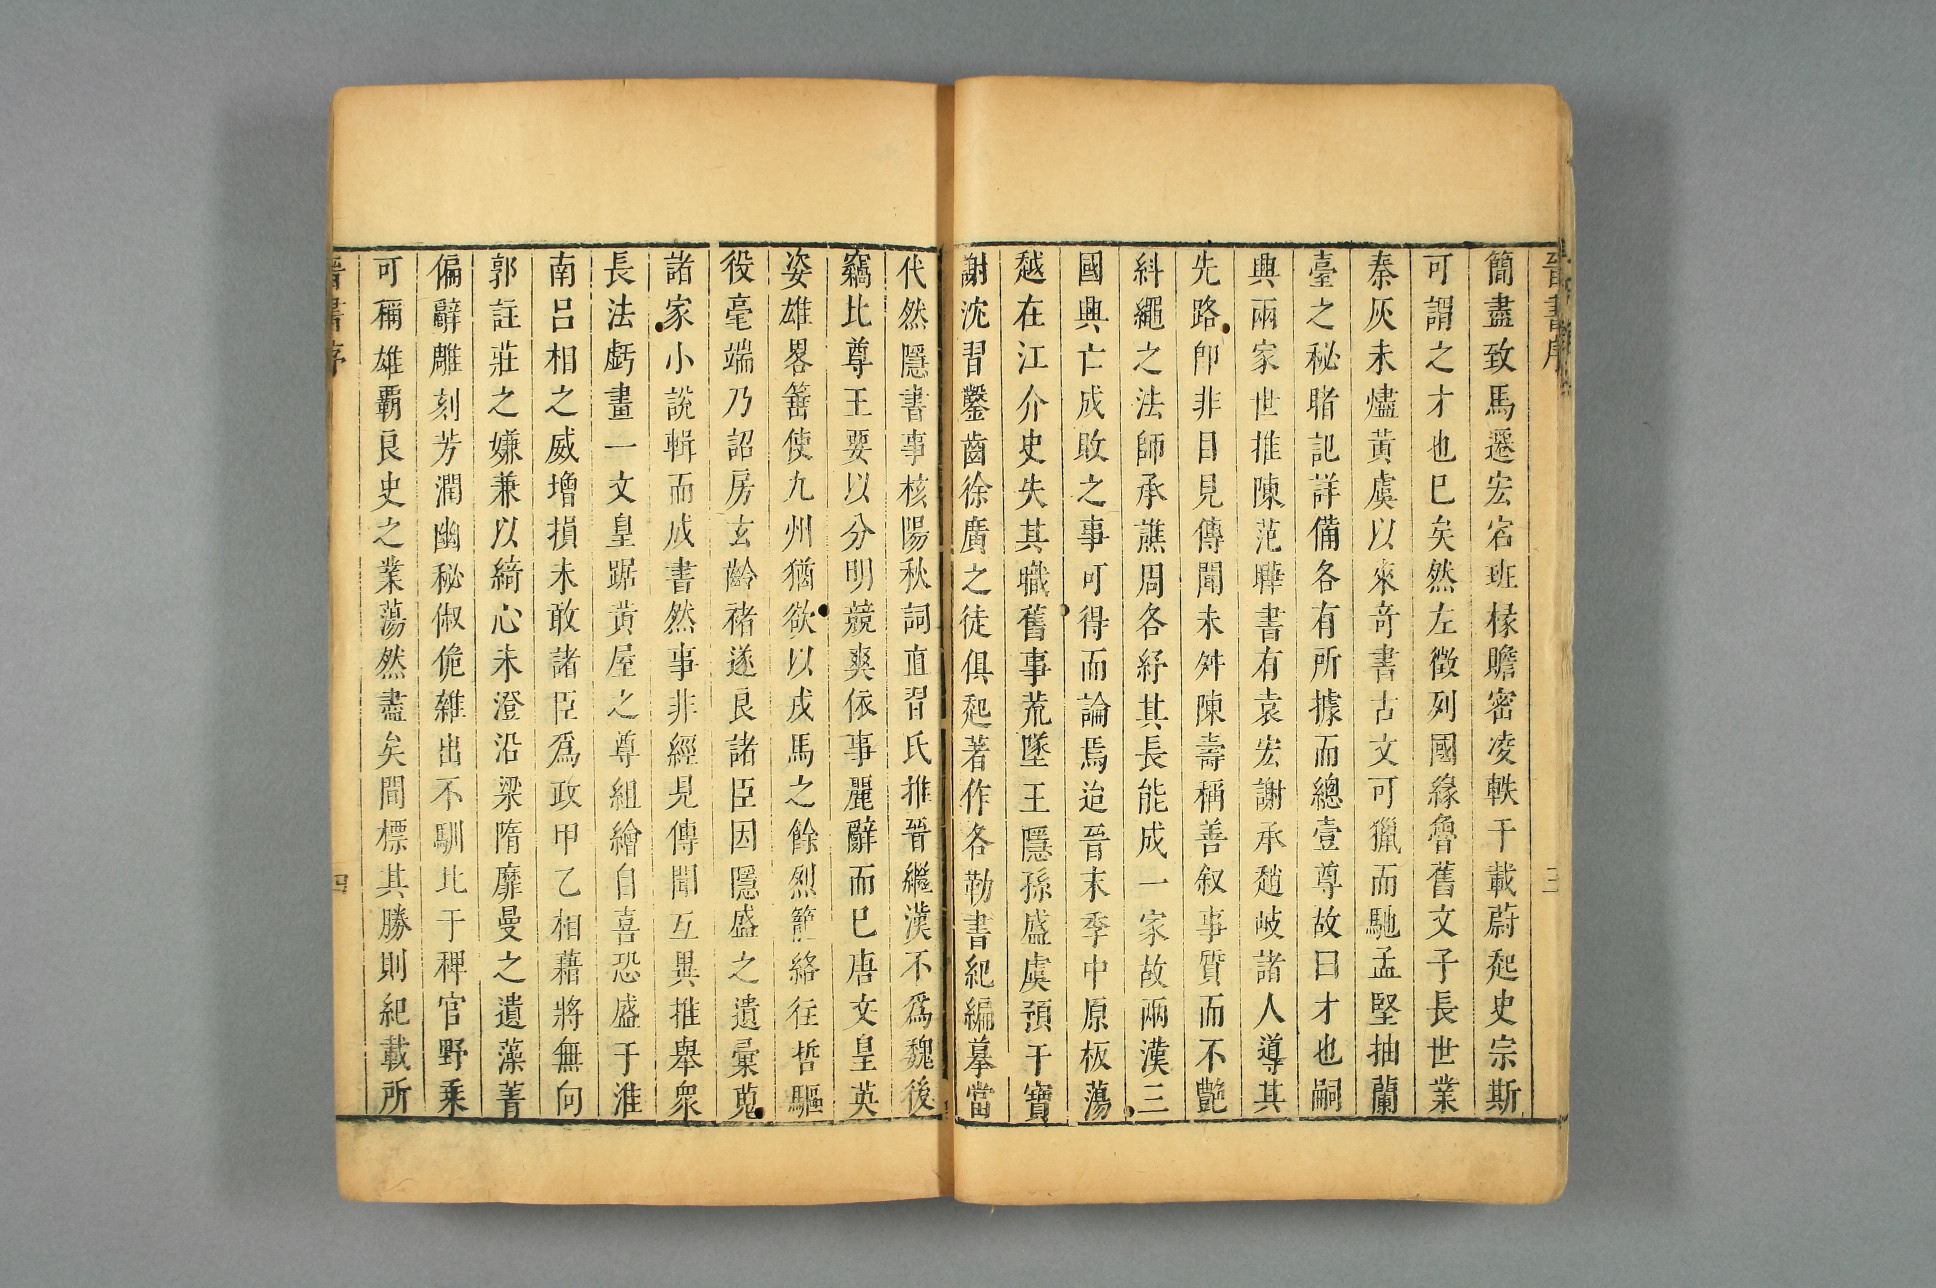 晉書序
三
簡盡致馬遷宏宕班椽贍密凌軼千載蔚起史宗斯
可謂之才也已矣然左徵列國緣魯舊文子長世業
秦灰未燼黃虞以來奇書古文可獵而馳孟堅抽蘭
臺之秘睹記詳備各有所據而總壹尊故曰才也嗣
興兩家世推陳范曄書有袁宏謝承趙岐諸人導其
先路卽非目見傳聞未舛陳壽稱善叙事質而不艷
糾繩之法師承譙周各紓其長能成一家故兩漢三
國興亡成敗之事可得而論焉迨晉末季中原板蕩
越在江介史失其職舊事荒墜王隱孫盛虞預干寶
謝沈習鑿齒徐廣之徒俱起著作各勒書紀編摹當
代然隱書事核陽秋詞直習氏推晉繼漢不爲魏後
竊比尊王要以分明競爽依事麗辭而已唐文皇英
姿雄畧箠使九州猶欲以戎馬之餘烈籠絡往哲驅
役毫端乃詔房玄齡褚遂良諸臣因隱盛之遺彙蒐
諸家小說輯而成書然事非經見傳聞互異推舉衆
長法虧畫一文皇踞黃屋之尊組繪自喜恐盛于淮
南呂相之威增損未敢諸臣爲政甲乙相藉將無向
郭註莊之嫌兼以綺心未澄沿梁隋靡曼之遺藻菁
偏辭雕刻芳潤幽秘俶佹雜出不馴比于稗官野乘
可稱雄覇良史之業蕩然盡矣間標其勝則紀載所
晉書序
四